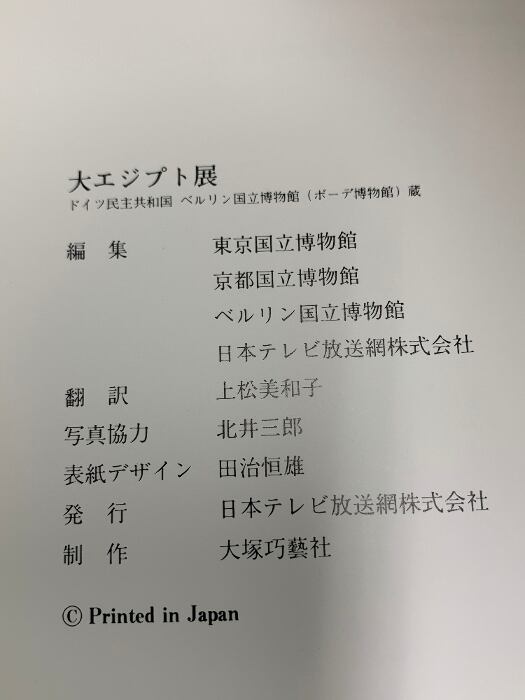 大エジプト展
ドイツ民主共和国 ベルリン国立博物館（ボーデ博物館）蔵
編　集　東京国立博物館
京都国立博物館
ベルリン国立博物館
日本テレビ放送網株式会社
翻　訳　上松美和子
写真協力　北井三郎
表紙デザイン　田治恒雄
発　行　日本テレビ放送網株式会社
制　作　大塚巧藝社
© Printed in Japan